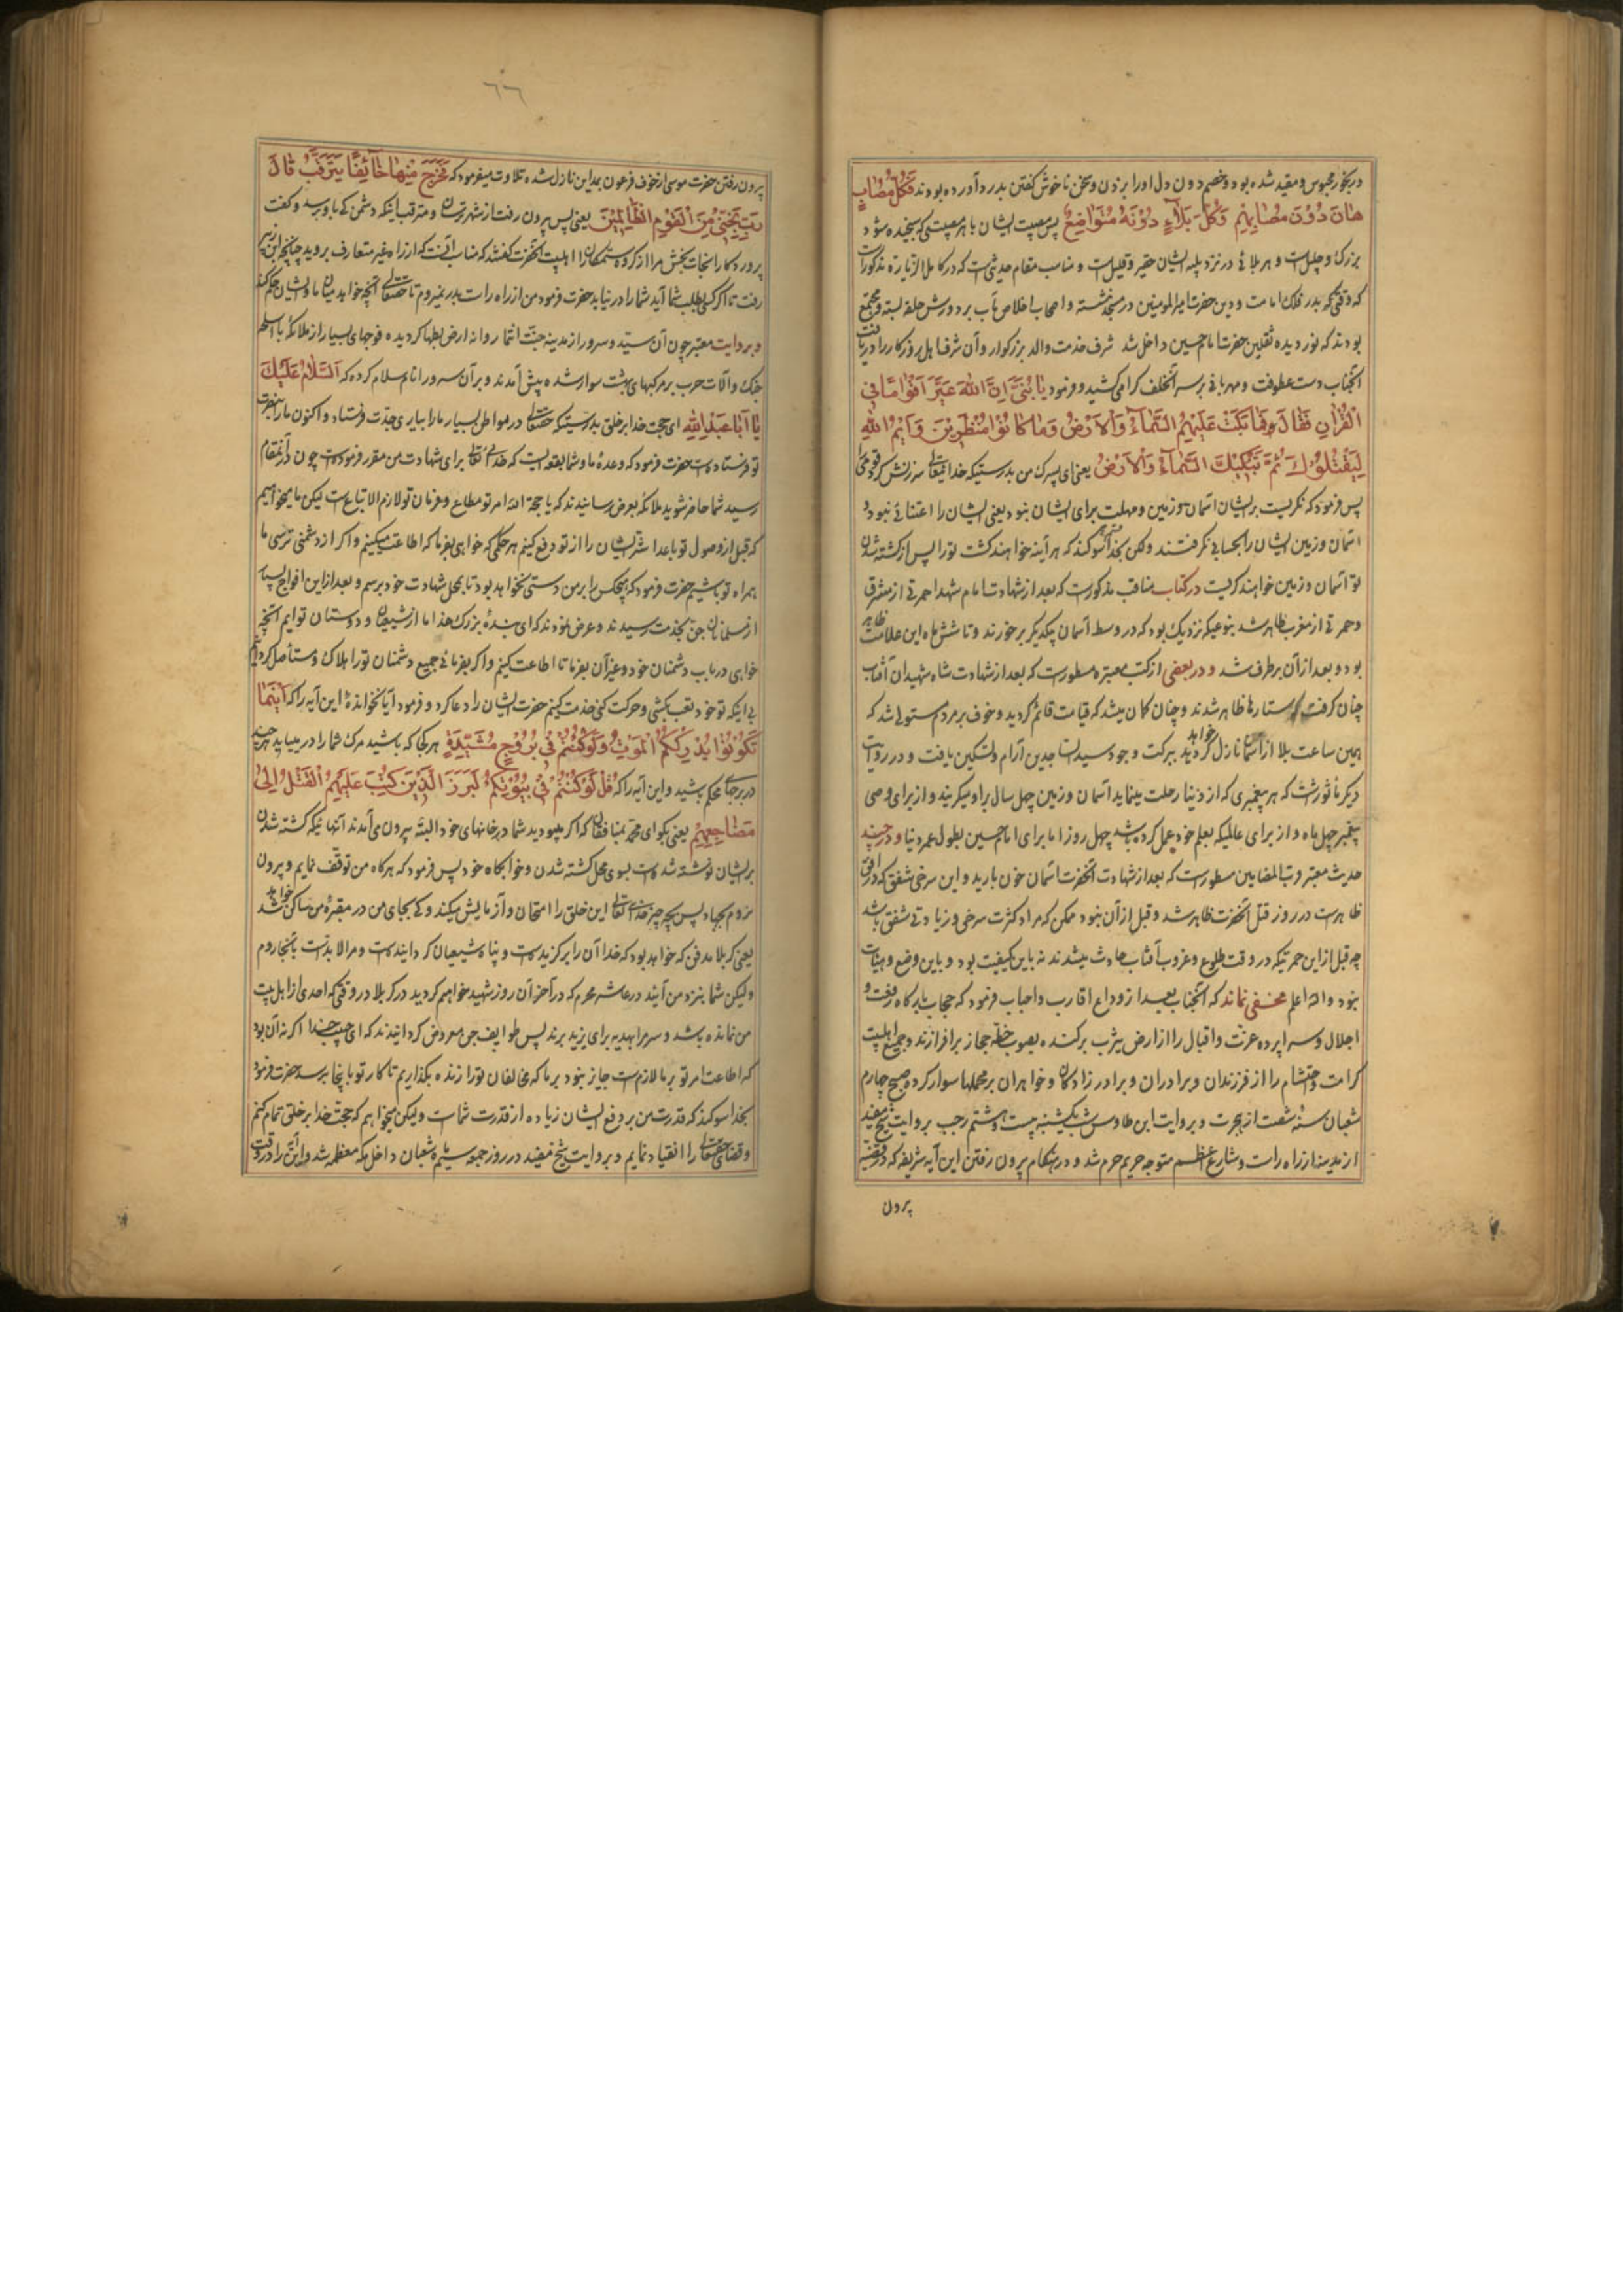 در بخور محبوس و مقید شده بود و خصم دون دل او را بزدن و سخن ناخوش گفتن بدرد آورده بودند فَكُلُّ مُصَابٍ
هَانَ دُوْنَ مُصَابِهِمْ وَكُلُّ بَلَاءٍ دُوْنَهُ مُتَوَاضِعٌ پس مصیبت ایشان با هر مصیبتی که سنجیده شود
بزرک و جلیل است و هر بلائی در نزد بلیه ایشان حقیر و قلیل است و مناسب مقام حدیثی است که در کامل الزیاره مذکور است
که وقتی که بدر فلک امامت و دین حضرت امیر المومنین در مسجد نشسته و اصحاب اخلاص مآب بر دورش حلقه بسته و مجتمع
بودند که نور دیده ثقلین حضرت امام حسین داخل شد شرف خدمت والد بزرکوار و آن شرف اهل روزکار را دریافت
آنجناب دست عطوفت و مهربانی بر سر آنخلف کرامی کشید و فرمود يَا بُنَيَّ اِنَّ اللهَ عَيَّرَ اَقْوَامًا فِي
الْقُرْاٰنِ فَقَالَ فَمَا بَكَتْ عَلَيْهِمُ السَّمَآءُ وَالْاَرْضُ وَمَا كَانُوْا مُنْظَرِيْنَ وَاَيْمُ اللهِ
لَيَقْتُلُوْنَكَ ثُمَّ تَبْكِيْكَ السَّمَآءُ وَالْاَرْضُ یعنی ای پسرک من بدرستیکه خدایتعالی سرزنش کرد قومی را
پس فرمود که نکریست بر ایشان آسمان و زمین و مهلت برای ایشان نبود یعنی ایشان را اعتنائی نبود و
آسمان و زمین ایشان را بحسابی نکرفتند ولکن بخدا قسم سوکند که هر آینه خواهند کشت تو را پس از کشته شدن
تو آسمان و زمین خواهند کریست در کتاب مناقب مذکور است که بعد از شهادت امام شهدا حمرتی از مشرق
و حمرتی از مغرب ظاهر شد بنوعیکه نزدیک بود که در وسط آسمان بیکدیکر برخورند و تا شش ماه این علامت ظاهر
بود و بعد از آن برطرف شد و در بعضی از کتب معتبره مسطور است که بعد از شهادت شاه شهیدان آفتاب
چنان کرفت که ستارها ظاهر شدند و چنان کمان میشد که قیامت قائم کردید و خوف بر مردم مستولی شد که
همین ساعت بلا از آسمان نازل خواهد کردید ببرکت وجود سید الساجدین آرام و تسکین یافت و در روایت
دیکر ماثور است که هر پیغمبری که از دنیا رحلت مینماید آسمان و زمین چهل سال بر او میکریند و از برای وصی
پیغمبر چهل ماه و از برای عالمیکه بعلم خود عمل کرده باشد چهل روز اما برای امام حسین بطول عمر دنیا و در چند
حدیث معتبر و تبا المضامین مسطور است که بعد از شهادت آنحضرت آسمان خون بارید و این سرخی شفق که در افق
ظاهر است در روز قتل آنحضرت ظاهر شد و قبل از آن نبود ممکن که مراد کثرت سرخی و زیادتی شفق باشد
چه قبل از این حمرتیکه در وقت طلوع و غروب آفتاب حادث میشدند نه باین کیفیت بود و باین وضع و هیئات
نبود والله اعلم مخفی نماند که آنجناب بعد از وداع اقارب و احباب فرمود که حجاب بارکاه رفعت و
اجلال و سراپرده عزت و اقبال را از ارض یثرب برکنده بصوب خطه حجاز برافرازند و جمیع اهلبیت
کرامت و احتشام را از فرزندان و برادران و برادر زادکان و خواهران بر محملها سوار کرده صبح چهارم
شعبان سنه شصت از هجرت و بروایت ابن طاوس شب یکشنبه بیست و هشتم رجب بروایت شیخ مفید
از مدینه از راه راست و شارع اعظم متوجه حریم حرم شد و در هنکام بیرون رفتن این آیه شریفه که در قضیه
بیرون
٦٦
بیرون رفتن حضرت موسی از خوف فرعون بمداین نازل شده تلاوت میفرمود که فَخَرَجَ مِنْهَا خَآئِفًا يَتَرَقَّبُ قَالَ
رَبِّ نَجِّنِيْ مِنَ الْقَوْمِ الظَّالِمِيْنَ یعنی پس بیرون رفت از شهر ترسان و مترقب اینکه دشمن کی باو برسد و کفت
پروردکارا نجات بخش مرا از کروه ستمکاران اهلبیت آنحضرت کفتند که مناسب آنست که از راه غیر متعارف بروید چنانچه ابن زبیر
رفت تا اکر کسی بطلب شما آید شما را درنیابد حضرت فرمود من از راه راست بدر نمیروم تا حقتعالی آنچه خواهد میان ما و ایشان حکم کند
و بروایت معتبر چون آن سید و سرور از مدینه جنت انتما روانه ارض بطها کردیده فوجهای بسیار از ملائکه با اسلحه
جنک و آلات حرب بر مرکبهای بهشت سوار شده پیش آمدند و بر آن سرور انام سلام کرده که اَلسَّلَامُ عَلَيْكَ
يَا اَبَا عَبْدِ اللهِ ای حجت خدا بر خلق بدرستیکه حقتعالی در مواطن بسیار ما را بیاری جدت فرستاد و اکنون ما را بنصرت
تو فرستاده است حضرت فرمود که وعده ما و شما بقعه ایست که خدای تعالی برای شهادت من مقرر فرموده است چون در آنمقام
رسید شما حاضر شوید ملائکه بعرض رسانیدند که یا حجة الله امر تو مطاع و فرمان تو لازم الاتباع است لیکن ما میخواهیم
که قبل از وصول تو باعدا شر ایشان را از تو دفع کنیم هر حکمی که خواهی بفرما که اطاعت میکنیم و اکر از دشمنی ترسی ما
همراه تو باشیم حضرت فرمود که هیچکس را بر من دستی نخواهد بود تا بمحل شهادت خود برسم و بعد از این افواج بسیار
از مسلمانان جن بخدمت رسیدند و عرض نمودند که ای سید بزرک خدا ما از شیعیان و دوستان توایم آنچه
خواهی در باب دشمنان خود و غیر آن بفرما تا اطاعت کنیم و اکر بفرمائی جمیع دشمنان تو را هلاک و مستأصل کردانیم
بی اینکه تو خود تعب بکشی و حرکت کنی خدمت کنیم حضرت ایشان را دعا کرد و فرمود آیا نخوانده‌ این آیه را که اَيْنَمَا
تَكُوْنُوْا يُدْرِكْكُمُ الْمَوْتُ وَلَوْ كُنْتُمْ فِيْ بُرُوْجٍ مُشَيَّدَةٍ هر کجا که باشید مرک شما را در مییابد هر چند
در برجهای محکم باشید و این آیه را که قُلْ لَوْ كُنْتُمْ فِيْ بُيُوْتِكُمْ لَبَرَزَ الَّذِيْنَ كُتِبَ عَلَيْهِمُ الْقَتْلُ اِلٰى
مَضَاجِعِهِمْ یعنی بکو ای محمد بمنافقان که اکر میبودید شما در خانهای خود البته بیرون می‌آمدند آنهائیکه کشته شدن
بر ایشان نوشته شده است بسوی محل کشته شدن و خوابکاه خود پس فرمود که هرکاه من توقف نمایم و بیرون
نروم بجهاد پس بچه چیز خدای تعالی این خلق را امتحان و آزمایش میکند و کی بجای من در مقبره من ساکن خواهد شد
یعنی کربلا مدفن که خواهد بود که خدا آن را برکزیده است و پناه شیعیان کردانیده است و مرا لابد است بآنجا روم
ولیکن شما بنزد من آئید در عاشر محرم که در آخر آن روز شهید خواهم کردید در کربلا در وقتی که احدی از اهل بیت
من نمانده باشد و سر مرا بهدیه برای یزید برند پس طوایف جن معروض کردانیدند که ای حبیب خدا اکر نه آن بود
که اطاعت امر تو بر ما لازم است جایز نبود بر ما که مخالفان تو را زنده بکذاریم تا کار تو باینجا برسد حضرت فرمود
بخدا سوکند که قدرت من بر دفع ایشان زیاده از قدرت شماست ولیکن میخواهم که حجت خدا بر خلق تمام کنم
و قضای حقتعالی را انقیاد نمایم و بروایت شیخ مفید در روز جمعه سیم شعبان داخل مکه معظمه شد و این آیه را در وقت